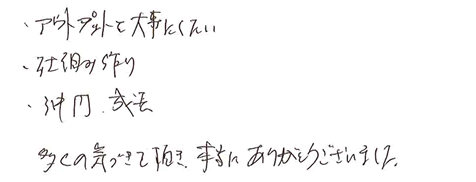 ・アウトプットを大事にしたい
・仕組み作り
・仲間、感謝
多くの気づきを頂き、本当にありがとうございました。